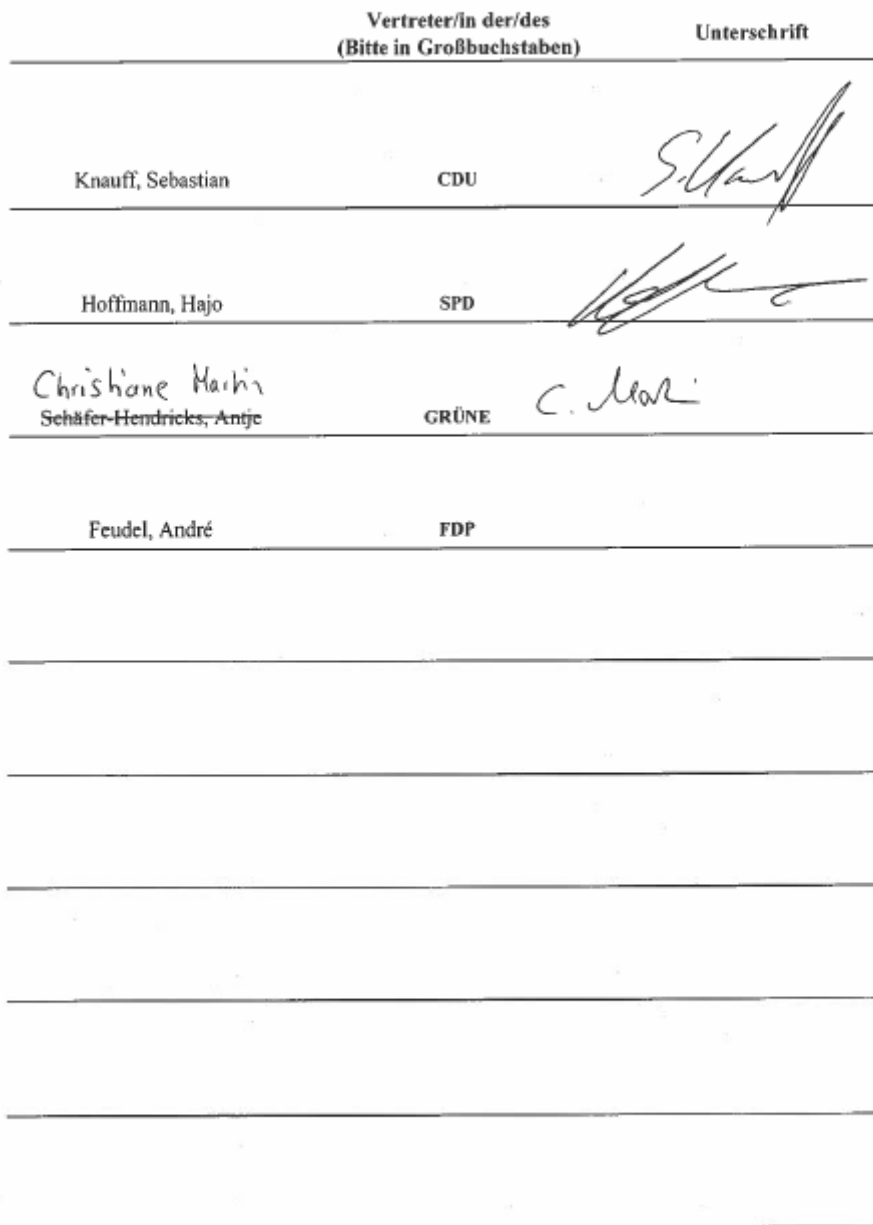 Vertreter/in der/des
(Bitte in Großbuchstaben) Unterschrift
Knauff, Sebastian CDU S. Knauff
Hoffmann, Hajo SPD
Christiane Martin
Schäfer-Hendricks, Antje GRÜNE C. Martin
Feudel, André FDP